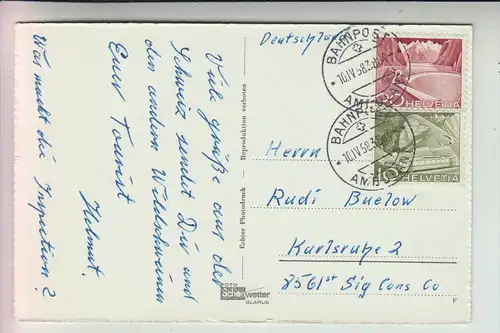 Viele Grüße aus der
Schweiz sendet Dir und
den andern Wildschweinen
Euer Tourist
Helmut.
Was macht die Inspection?
Echter Photodruck — Reproduktion verboten
FOTO
Schönwetter
GLARUS
Deutschland
BAHNPOST
10.IV.58
AMBULANT
HELVETIA
BAHNPOST
10.IV.58
AMBULANT
10
HELVETIA
Herrn
Rudi Buelow
Karlsruhe 2
8561st Sig Cons Co
F